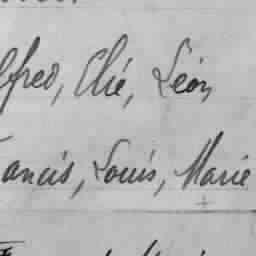 lfred, Elie, Léon,
rancis, Louis, Marie